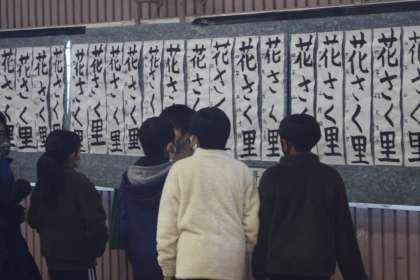 花さく里
花さく里
花さく里
花さく
花さく里
花さく里
花さく里
花さく里
花さく
花さく
花さく
花さく
花さく里
花さく里
花さく
花さく里
花さく里
花さく里
花さく里